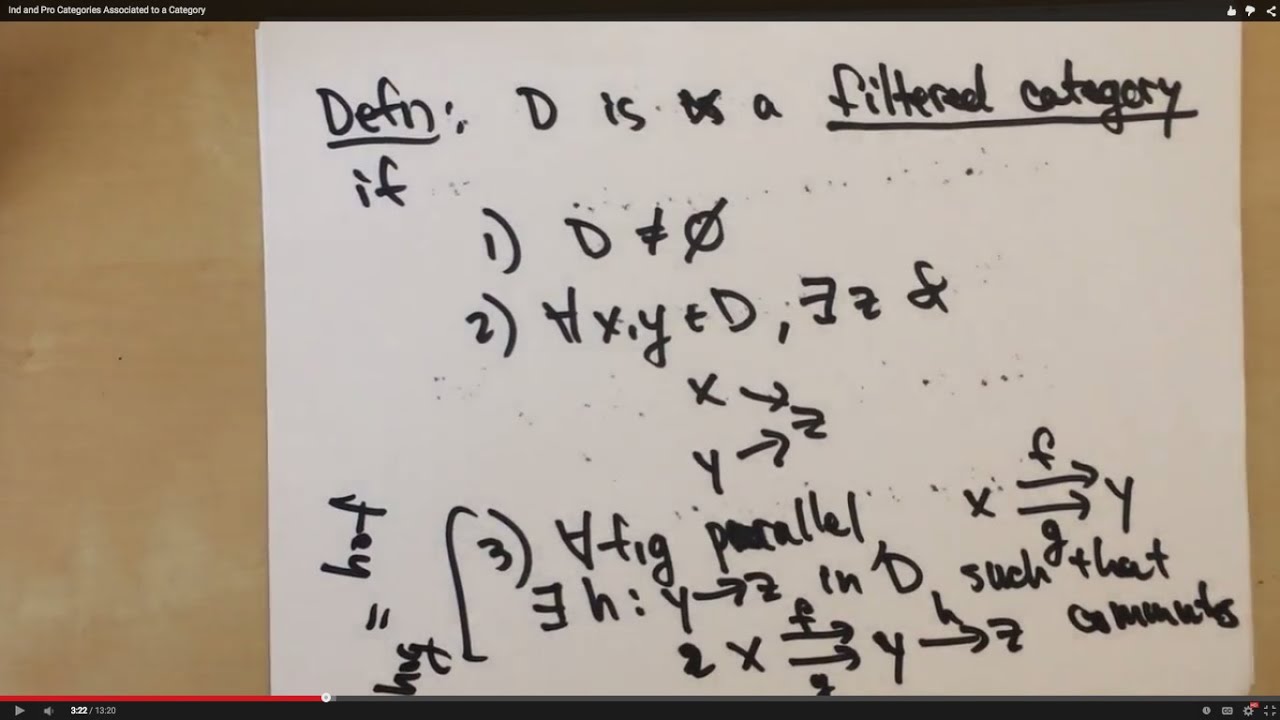 Ind and Pro Categories Associated to a Category
Defn: D is a filtered category
if
1) D ≠ Ø
2) ∀ x, y ∈ D, ∃ z &
x →
z
y →
3) ∀ f, g parallel
x ⇉ y
f
g
∃ h: y → z in D such that
x ⇉ y → z commutes
f
g
h
hgf
=
hof
3:22 / 13:20